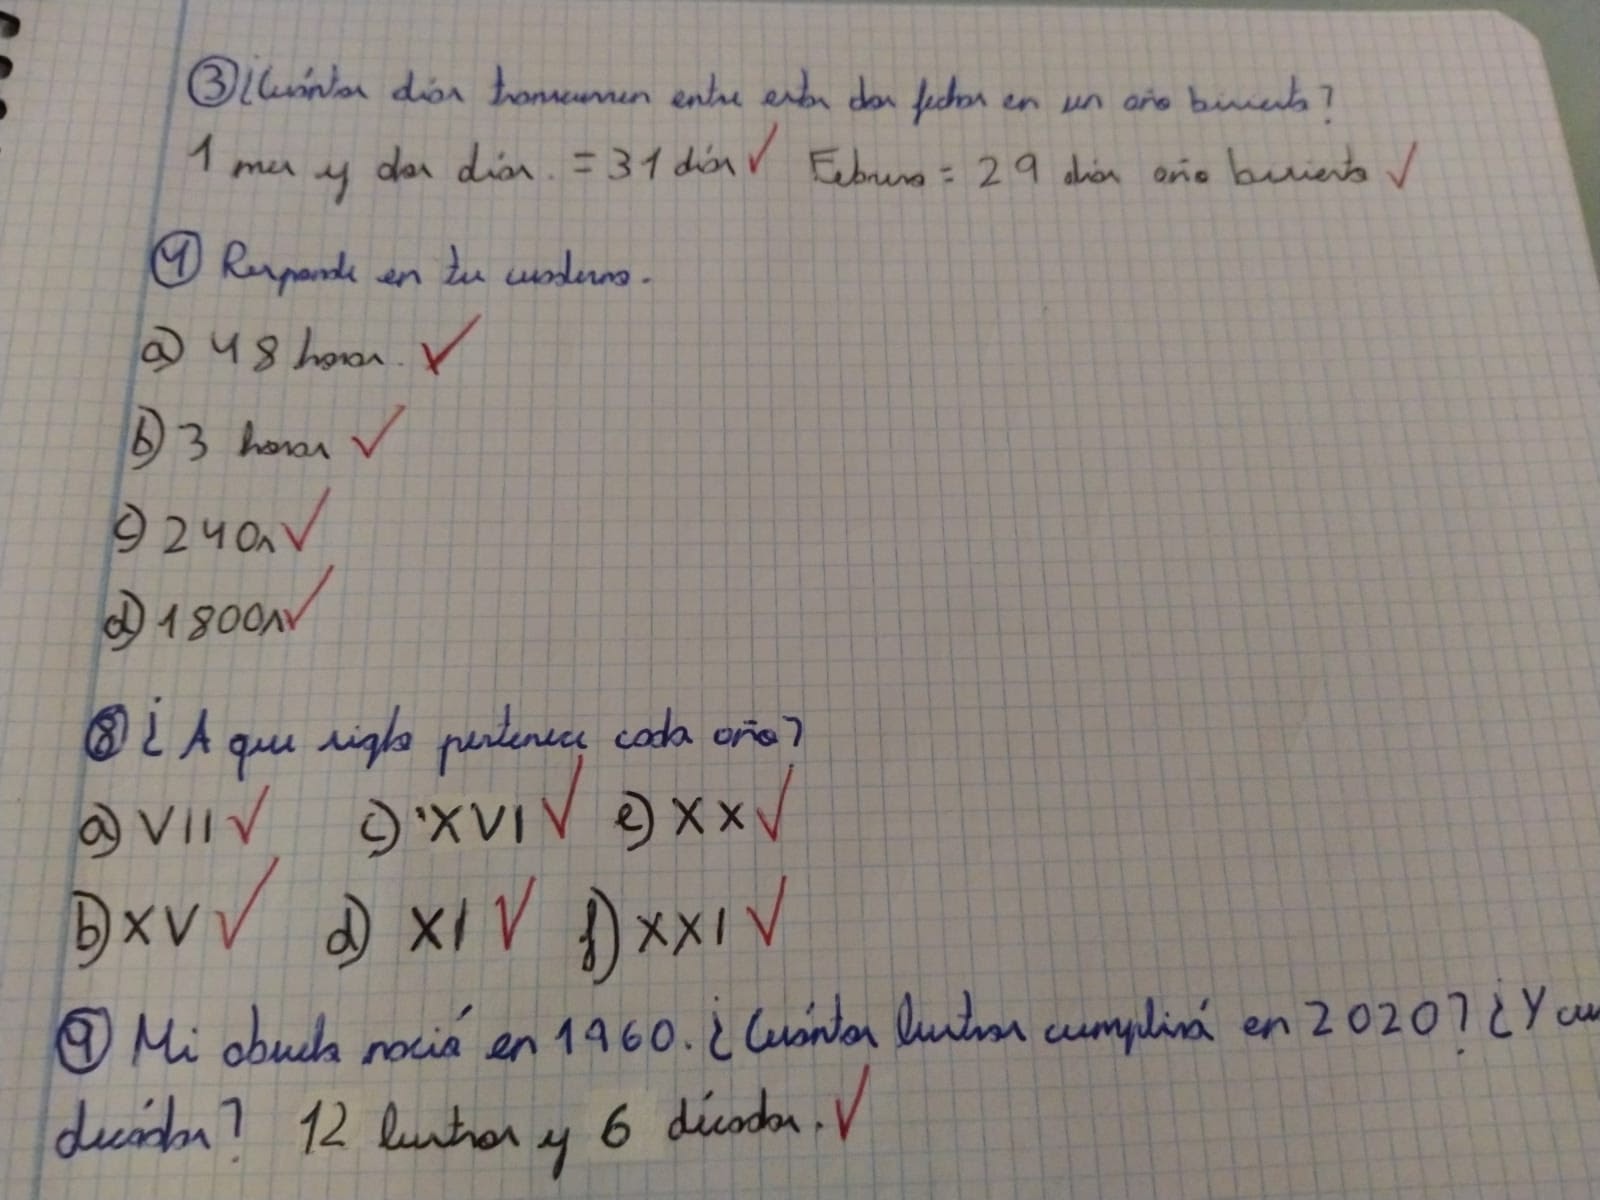 ③ ¿Cuántos días transcurren entre estas dos fechas en un año bisiesto?
1 mes y dos días. = 31 días ✓ Febrero = 29 días año bisiesto ✓
④ Responde en tu cuaderno.
a) 48 horas. ✓
b) 3 horas ✓
c) 240s ✓
d) 1800s ✓
⑧ ¿A que siglo pertenece cada año?
a) VII ✓ c) XVI ✓ e) XX ✓
b) XV ✓ d) XI ✓ f) XXI ✓
⑨ Mi abuela nació en 1960. ¿Cuántos lustros cumplirá en 2020? ¿Y cu
décadas? 12 lustros y 6 décadas. ✓